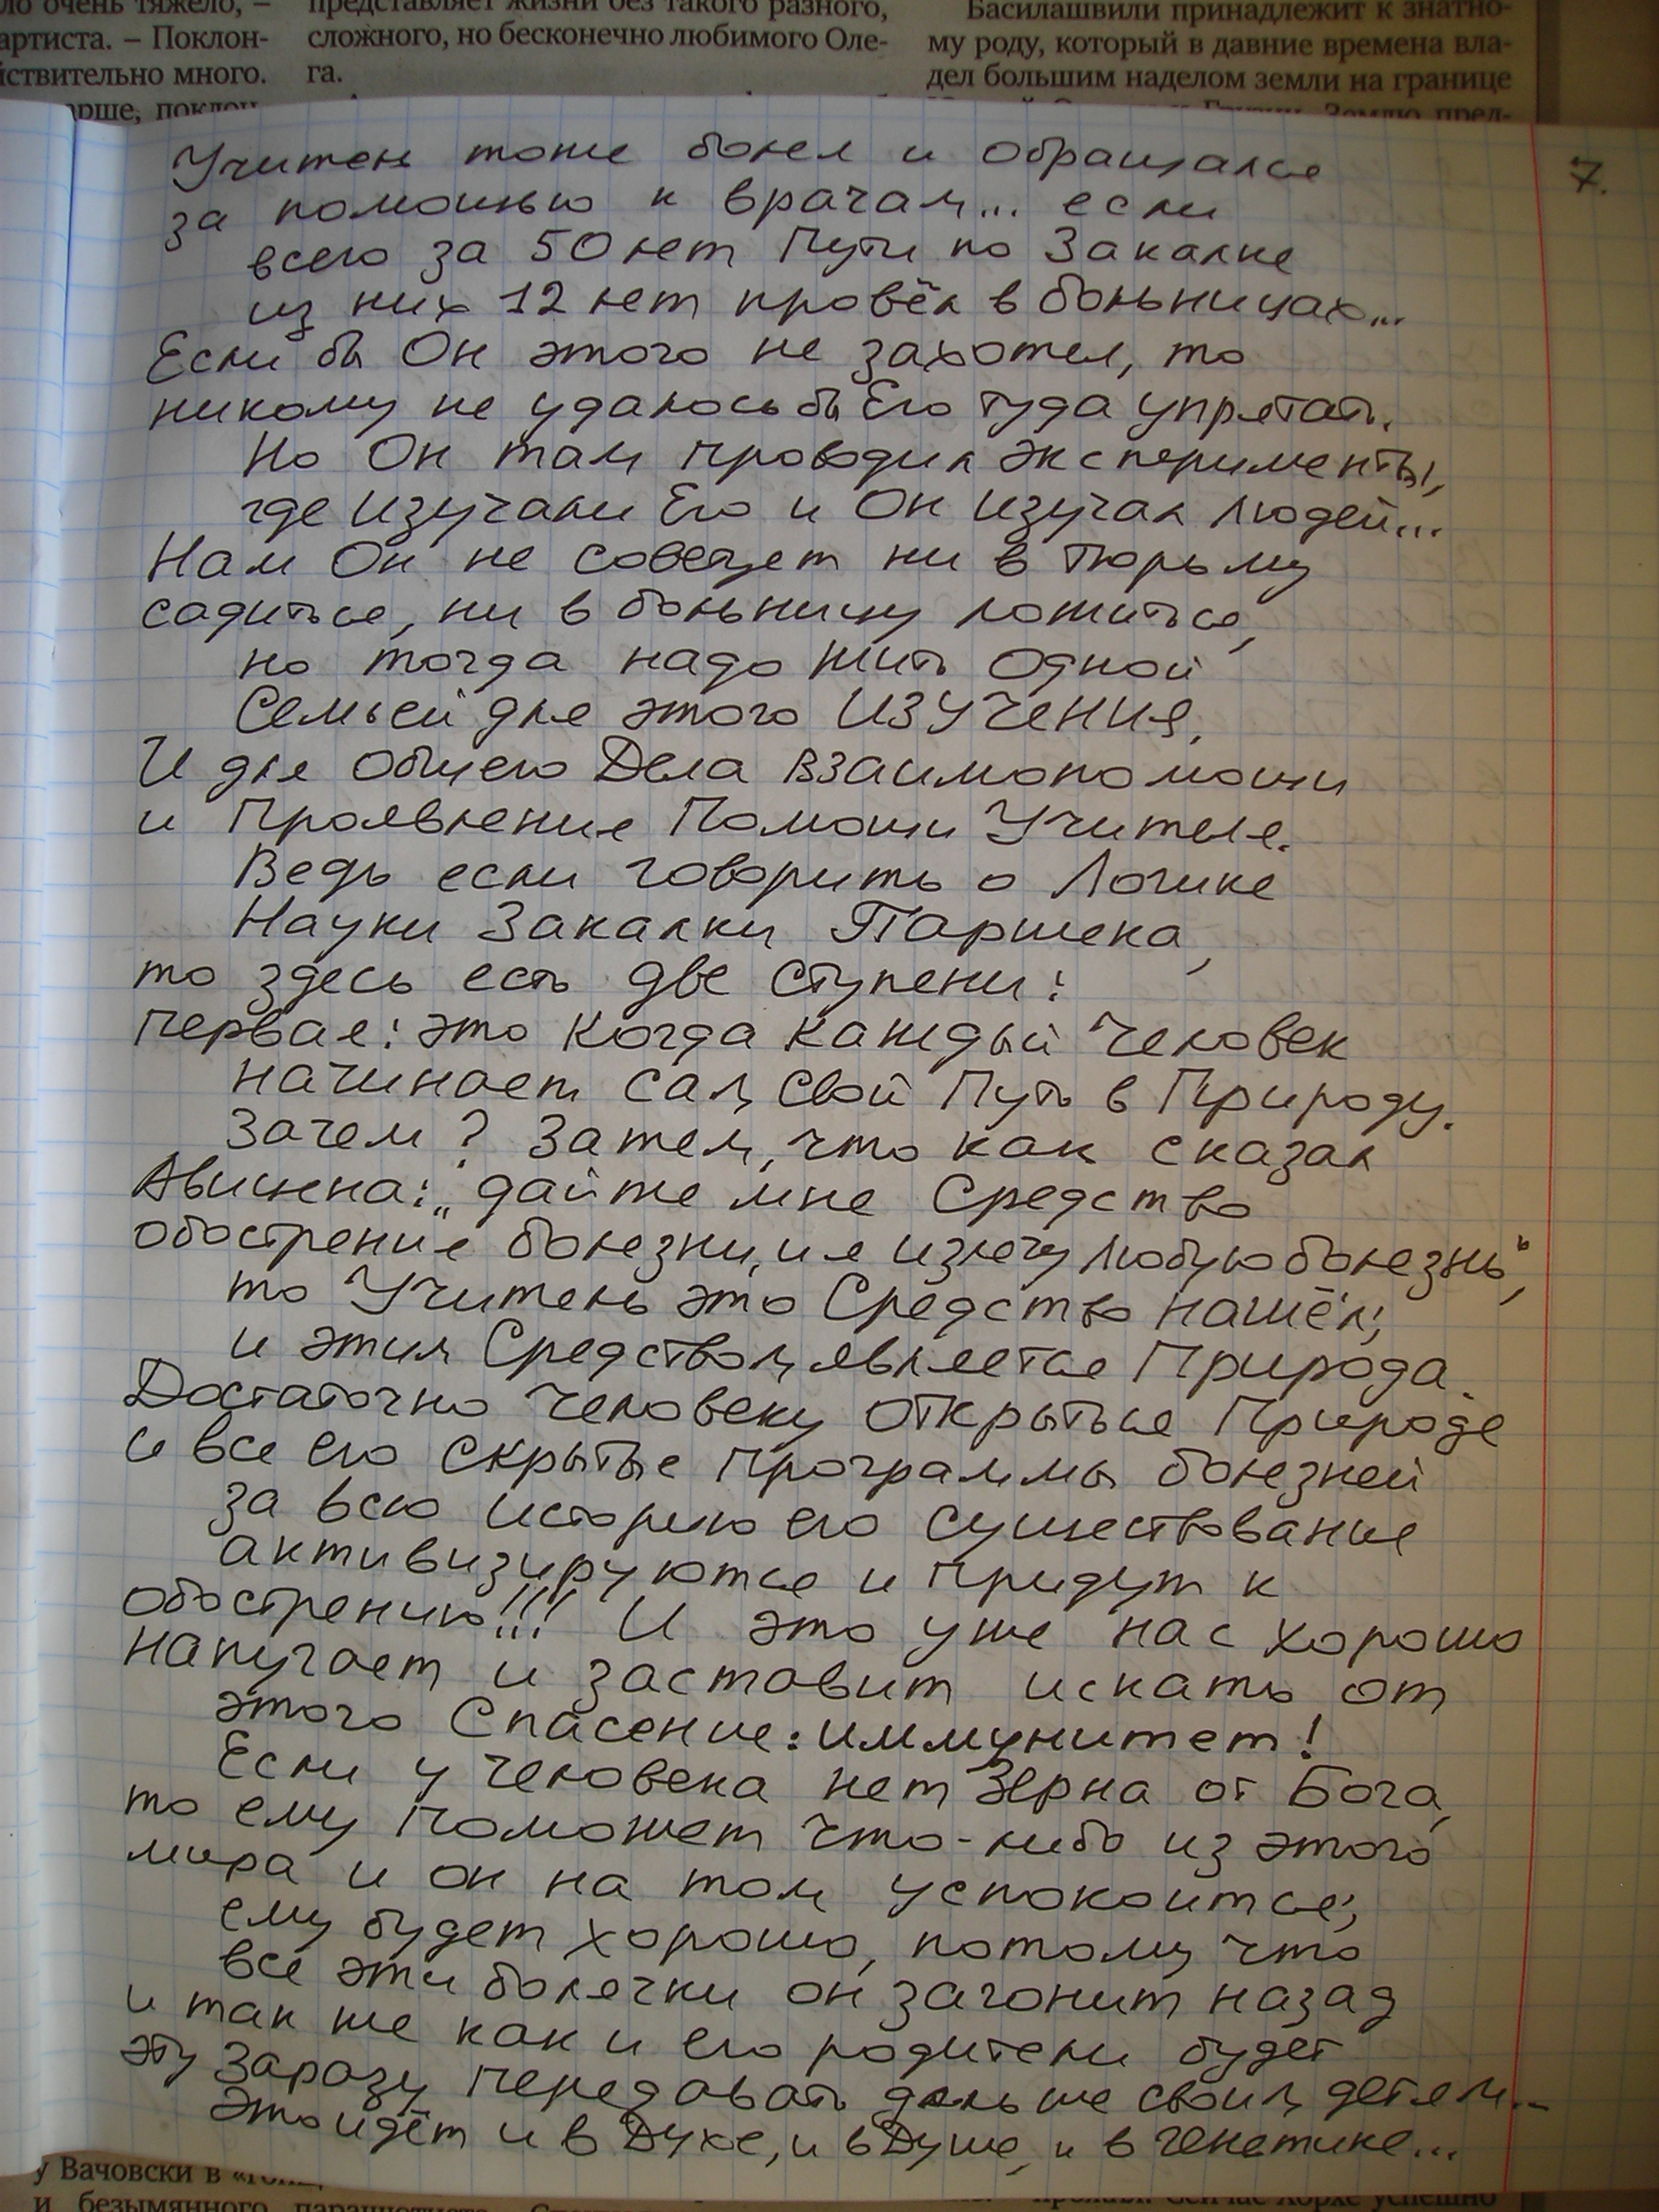 ло очень тяжело, –
артиста. – Поклон-
йствительно много.
арше, поклон-
представляет жизни без такого разного,
сложного, но бесконечно любимого Оле-
га.
Басилашвили принадлежит к знатно-
му роду, который в давние времена вла-
дел большим наделом земли на границе
7.
Учитель тоже болел и обращался
за помощью к врачам... если
всего за 50 лет Пути по Закалке
из них 12 лет провёл в больницах...
Если бы Он этого не захотел, то
никому не удалось бы Его туда упрятать.
Но Он там проводил эксперименты,
где изучали Его и Он изучал людей...
Нам Он не советует ни в тюрьму
садиться, ни в больницу ложиться,
но тогда надо жить одной
Семьей для этого ИЗУЧЕНИЯ,
И для Общего Дела взаимопомощи
и Проявления Помощи Учителя.
Ведь если говорить о Логике
Науки Закалки Паршека,
то здесь есть две ступени:
первая: это когда каждый человек
начинает сам свой Путь в Природу.
Зачем? Затем, что как сказал
Авиценна: „дайте мне Средство
обострения болезни, и я излечу любую болезнь“,
то Учитель это Средство нашёл;
и этим Средством является Природа.
Достаточно человеку открыться Природе
и все его скрытые программы болезней
за всю историю его существования
активизируются и придут к
обострению!!! И это уже нас хорошо
напугает и заставит искать от
этого Спасение: иммунитет!
Если у человека нет Зерна от Бога,
то ему поможет что-либо из этого
мира и он на том успокоится;
ему будет хорошо, потому что
все эти болячки он загонит назад
и так же как и его родители будет
эту заразу передавать дальше своим детям...
Это идёт и в Духе, и в Душе, и в генетике...
у Вачовски в
и безымянного парашютиста.